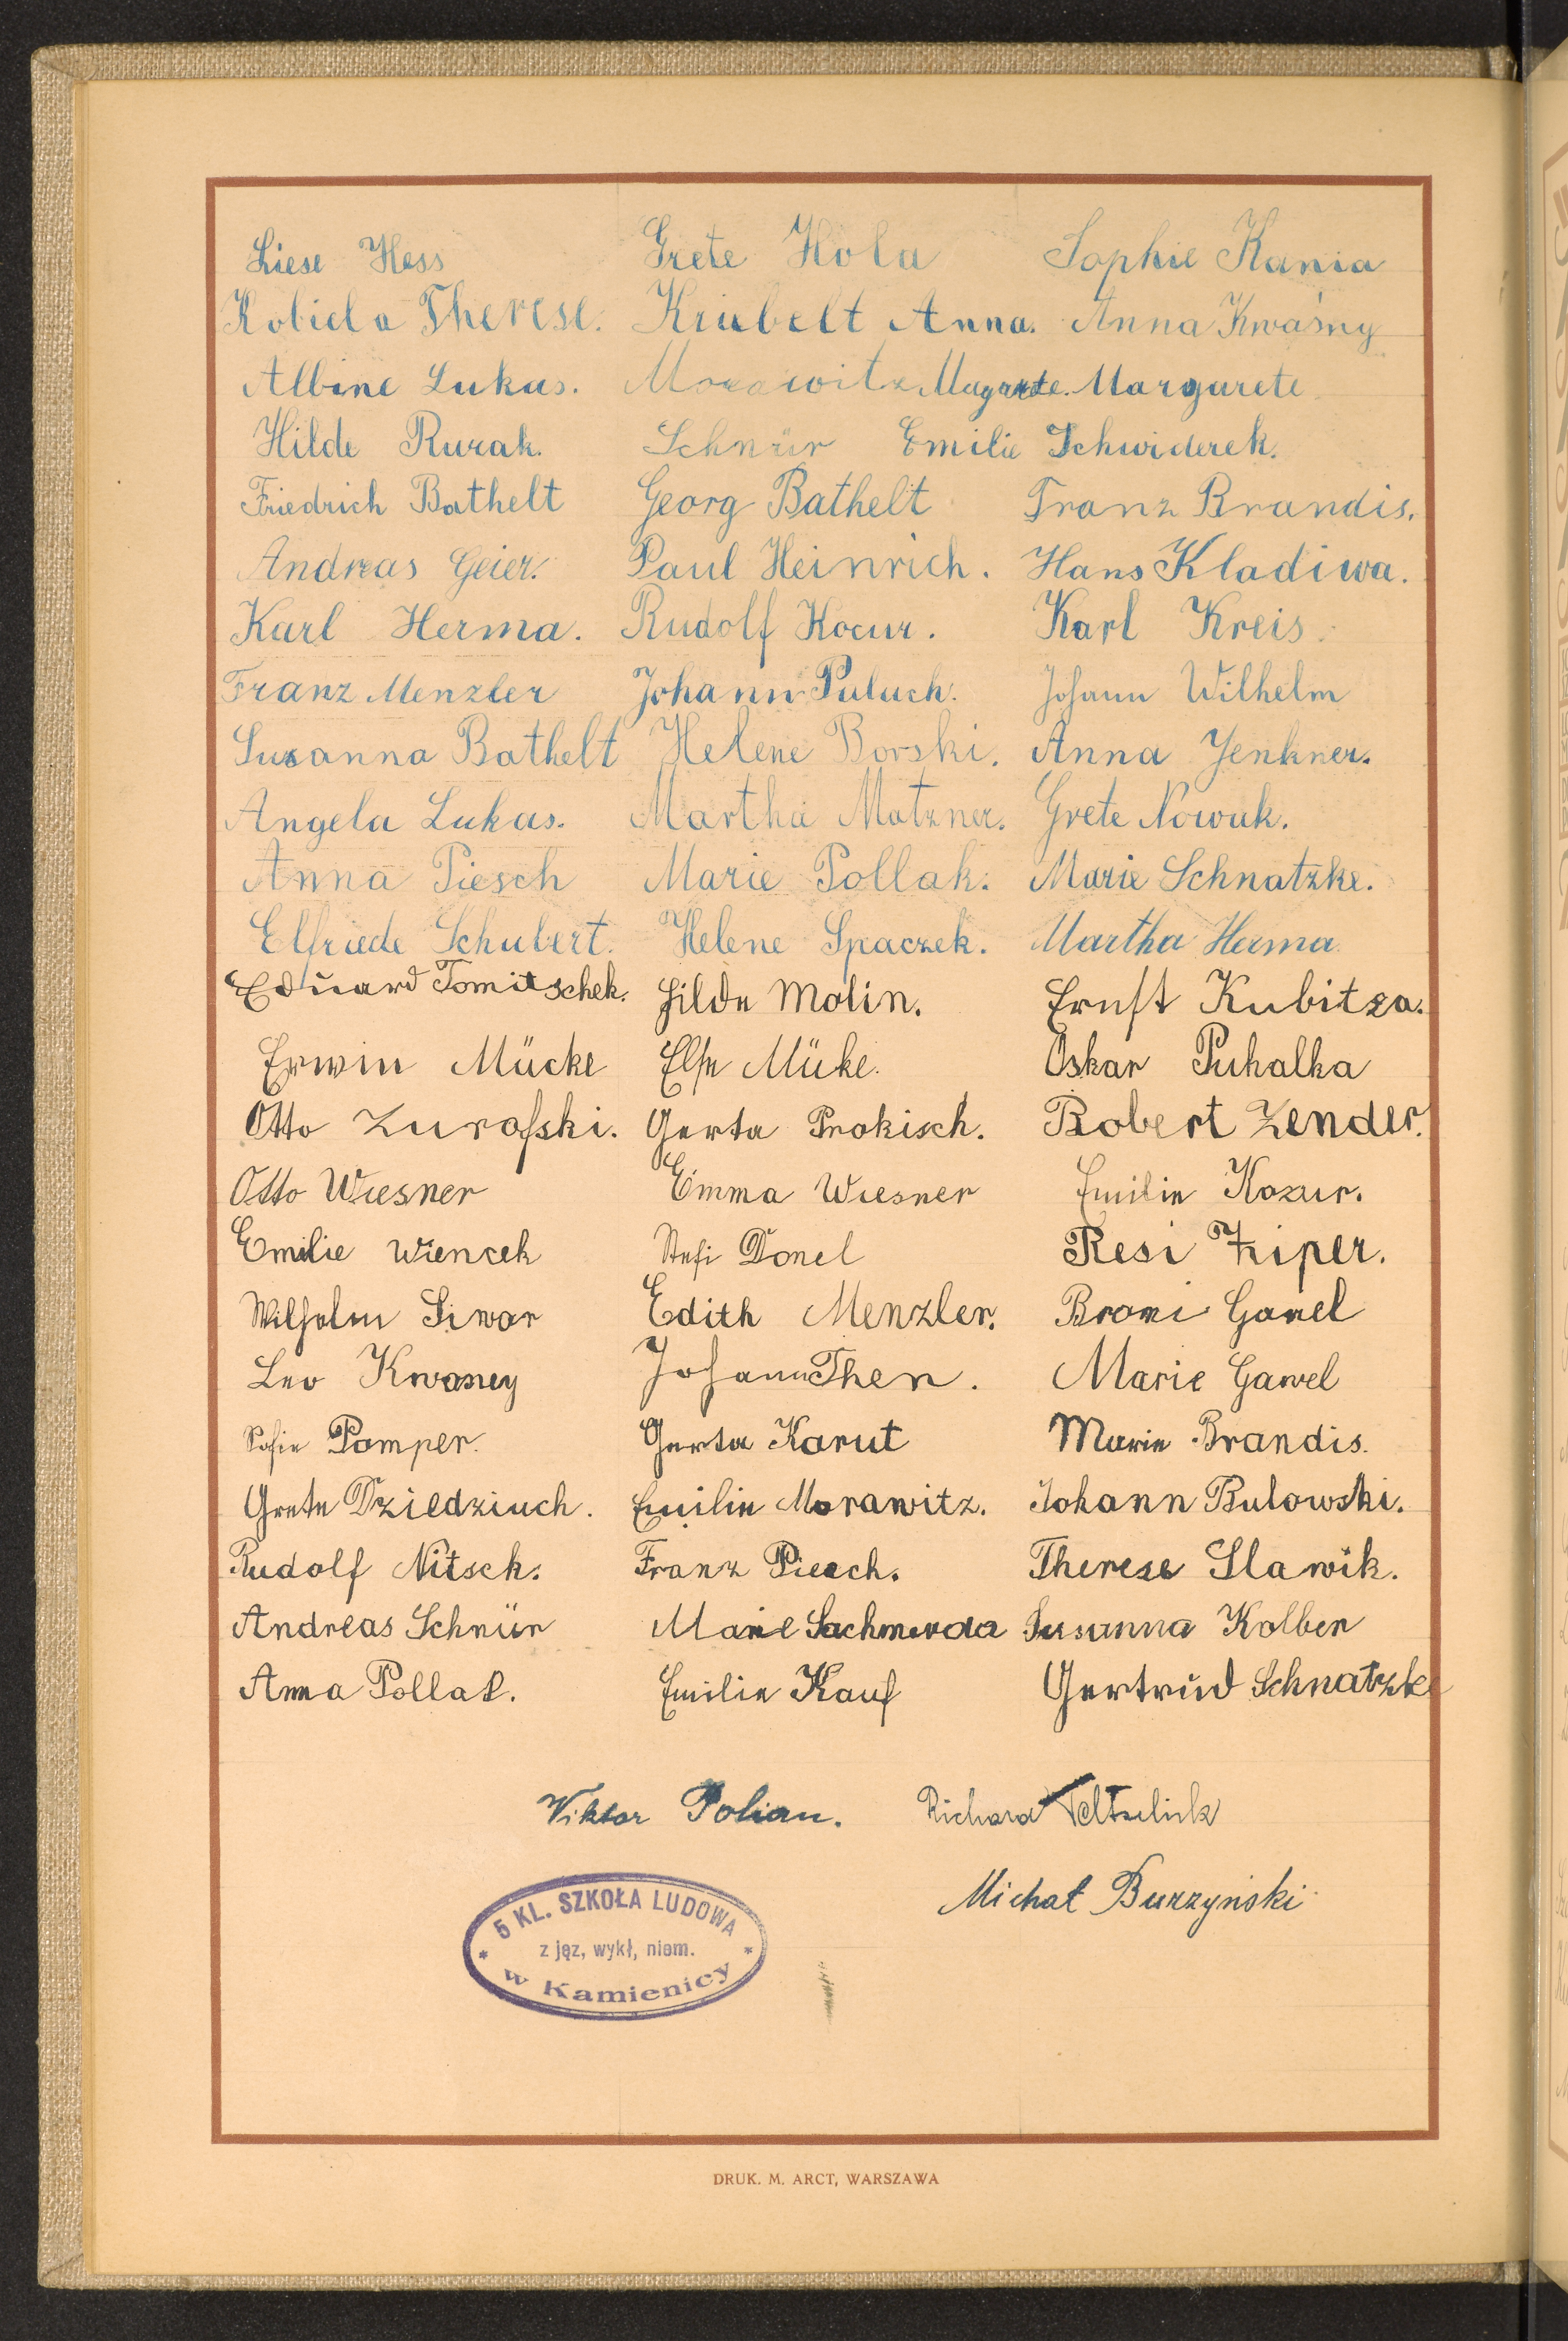 Liese Hess Grete Hola Sophie Kania
Kobiela Therese. Kriebelt Anna. Anna Kwaśny
Albine Lukas. Morawitz Magarete. Margarete
Hilde Rurak. Schnür Emilie Schwiderek.
Friedrich Bathelt Georg Bathelt Franz Brandis.
Andreas Geier. Paul Heinrich. Hans Kladiwa.
Karl Herma. Rudolf Kocur. Karl Kreis.
Franz Menzler Johann Puluch. Johann Wilhelm
Susanna Bathelt Helene Borski. Anna Jenkner.
Angela Lukas. Martha Matzner. Grete Nowak.
Anna Piesch Marie Pollak. Marie Schnatzke.
Elfriede Schubert. Helene Spaczek. Martha Herma.
Eduard Tomitschek. Hilde Molin. Ernst Kubitza.
Erwin Mücke Else Müke. Oskar Puhalka
Otto Zurafski. Gerta Prokisch. Robert Zender.
Otto Wiesner Emma Wiesner Emilie Kozur.
Emilie Wiencek Stefi Donel Resi Ziper.
Wilhelm Siwar Edith Menzler. Broni Gawel
Leo Kwasney Johann Then. Marie Gawel
Sofie Pamper. Gerta Karut Marie Brandis.
Grete Dziedziuch. Emilie Morawitz. Johann Bulowski.
Rudolf Nitsch. Franz Piesch. Therese Slawik.
Andreas Schnür Marie Sachmerda Susanna Kolber
Anna Pollak. Emilie Kauf Gertrud Schnatzke
Viktor Polian. Richard
Michał Burzyński
5 KL. SZKOŁA LUDOWA
z jęz, wykł, niem.
w Kamienicy
DRUK. M. ARCT, WARSZAWA